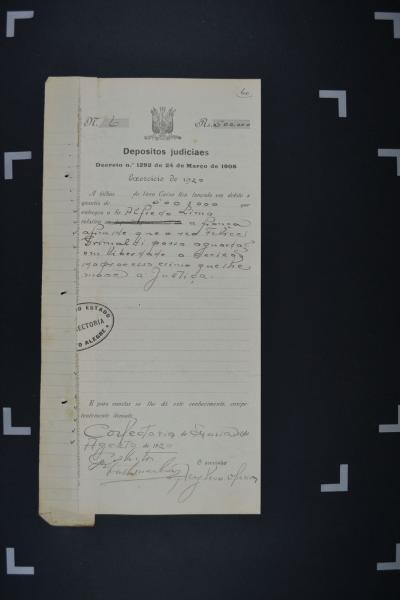 N. 6 Rs. 500.000
Depositos judiciaes
Decreto n.º 1292 de 24 de Março de 1908
Exercicio de 1920
A folhas do livro Caixa fica lançada em debito a
quantia de 500$000 que
entregou o Sr. Alfredo Lima
relativo a fiança
afim de que o reo Felicci
Grimaldi possa aguardar
em liberdade a decisão
do processo crime que lhe
move a Justiça.
DO ESTADO
RECTORIA
TO ALEGRE
E para constar se lhe dá este conhecimento, compe-
tentemente firmado.
Agosto de 1920
O escrivão